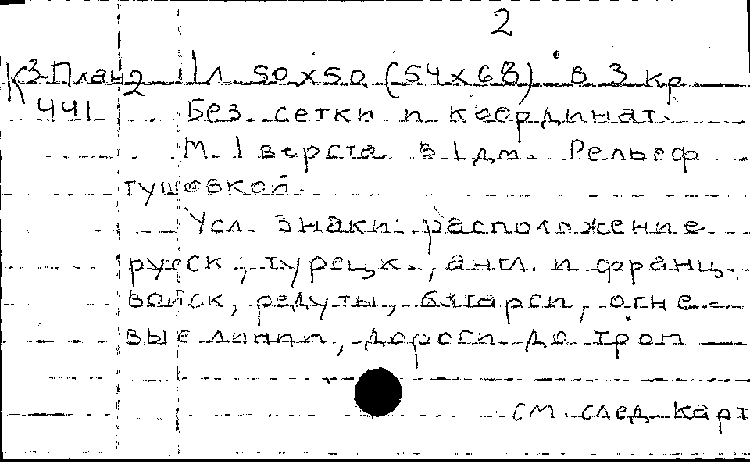 2
К3-План2 1 л. 50х50 (54х68) в 3 кр.
441 Без сетки и координат.
М. 1 верста в 1 дм. Рельеф
тушовкой.
Усл. знаки: расположение
русск., турецк., англ. и франц.
войск, редуты, батареи, огне-
вые линии, дороги до троп
см. след. карт